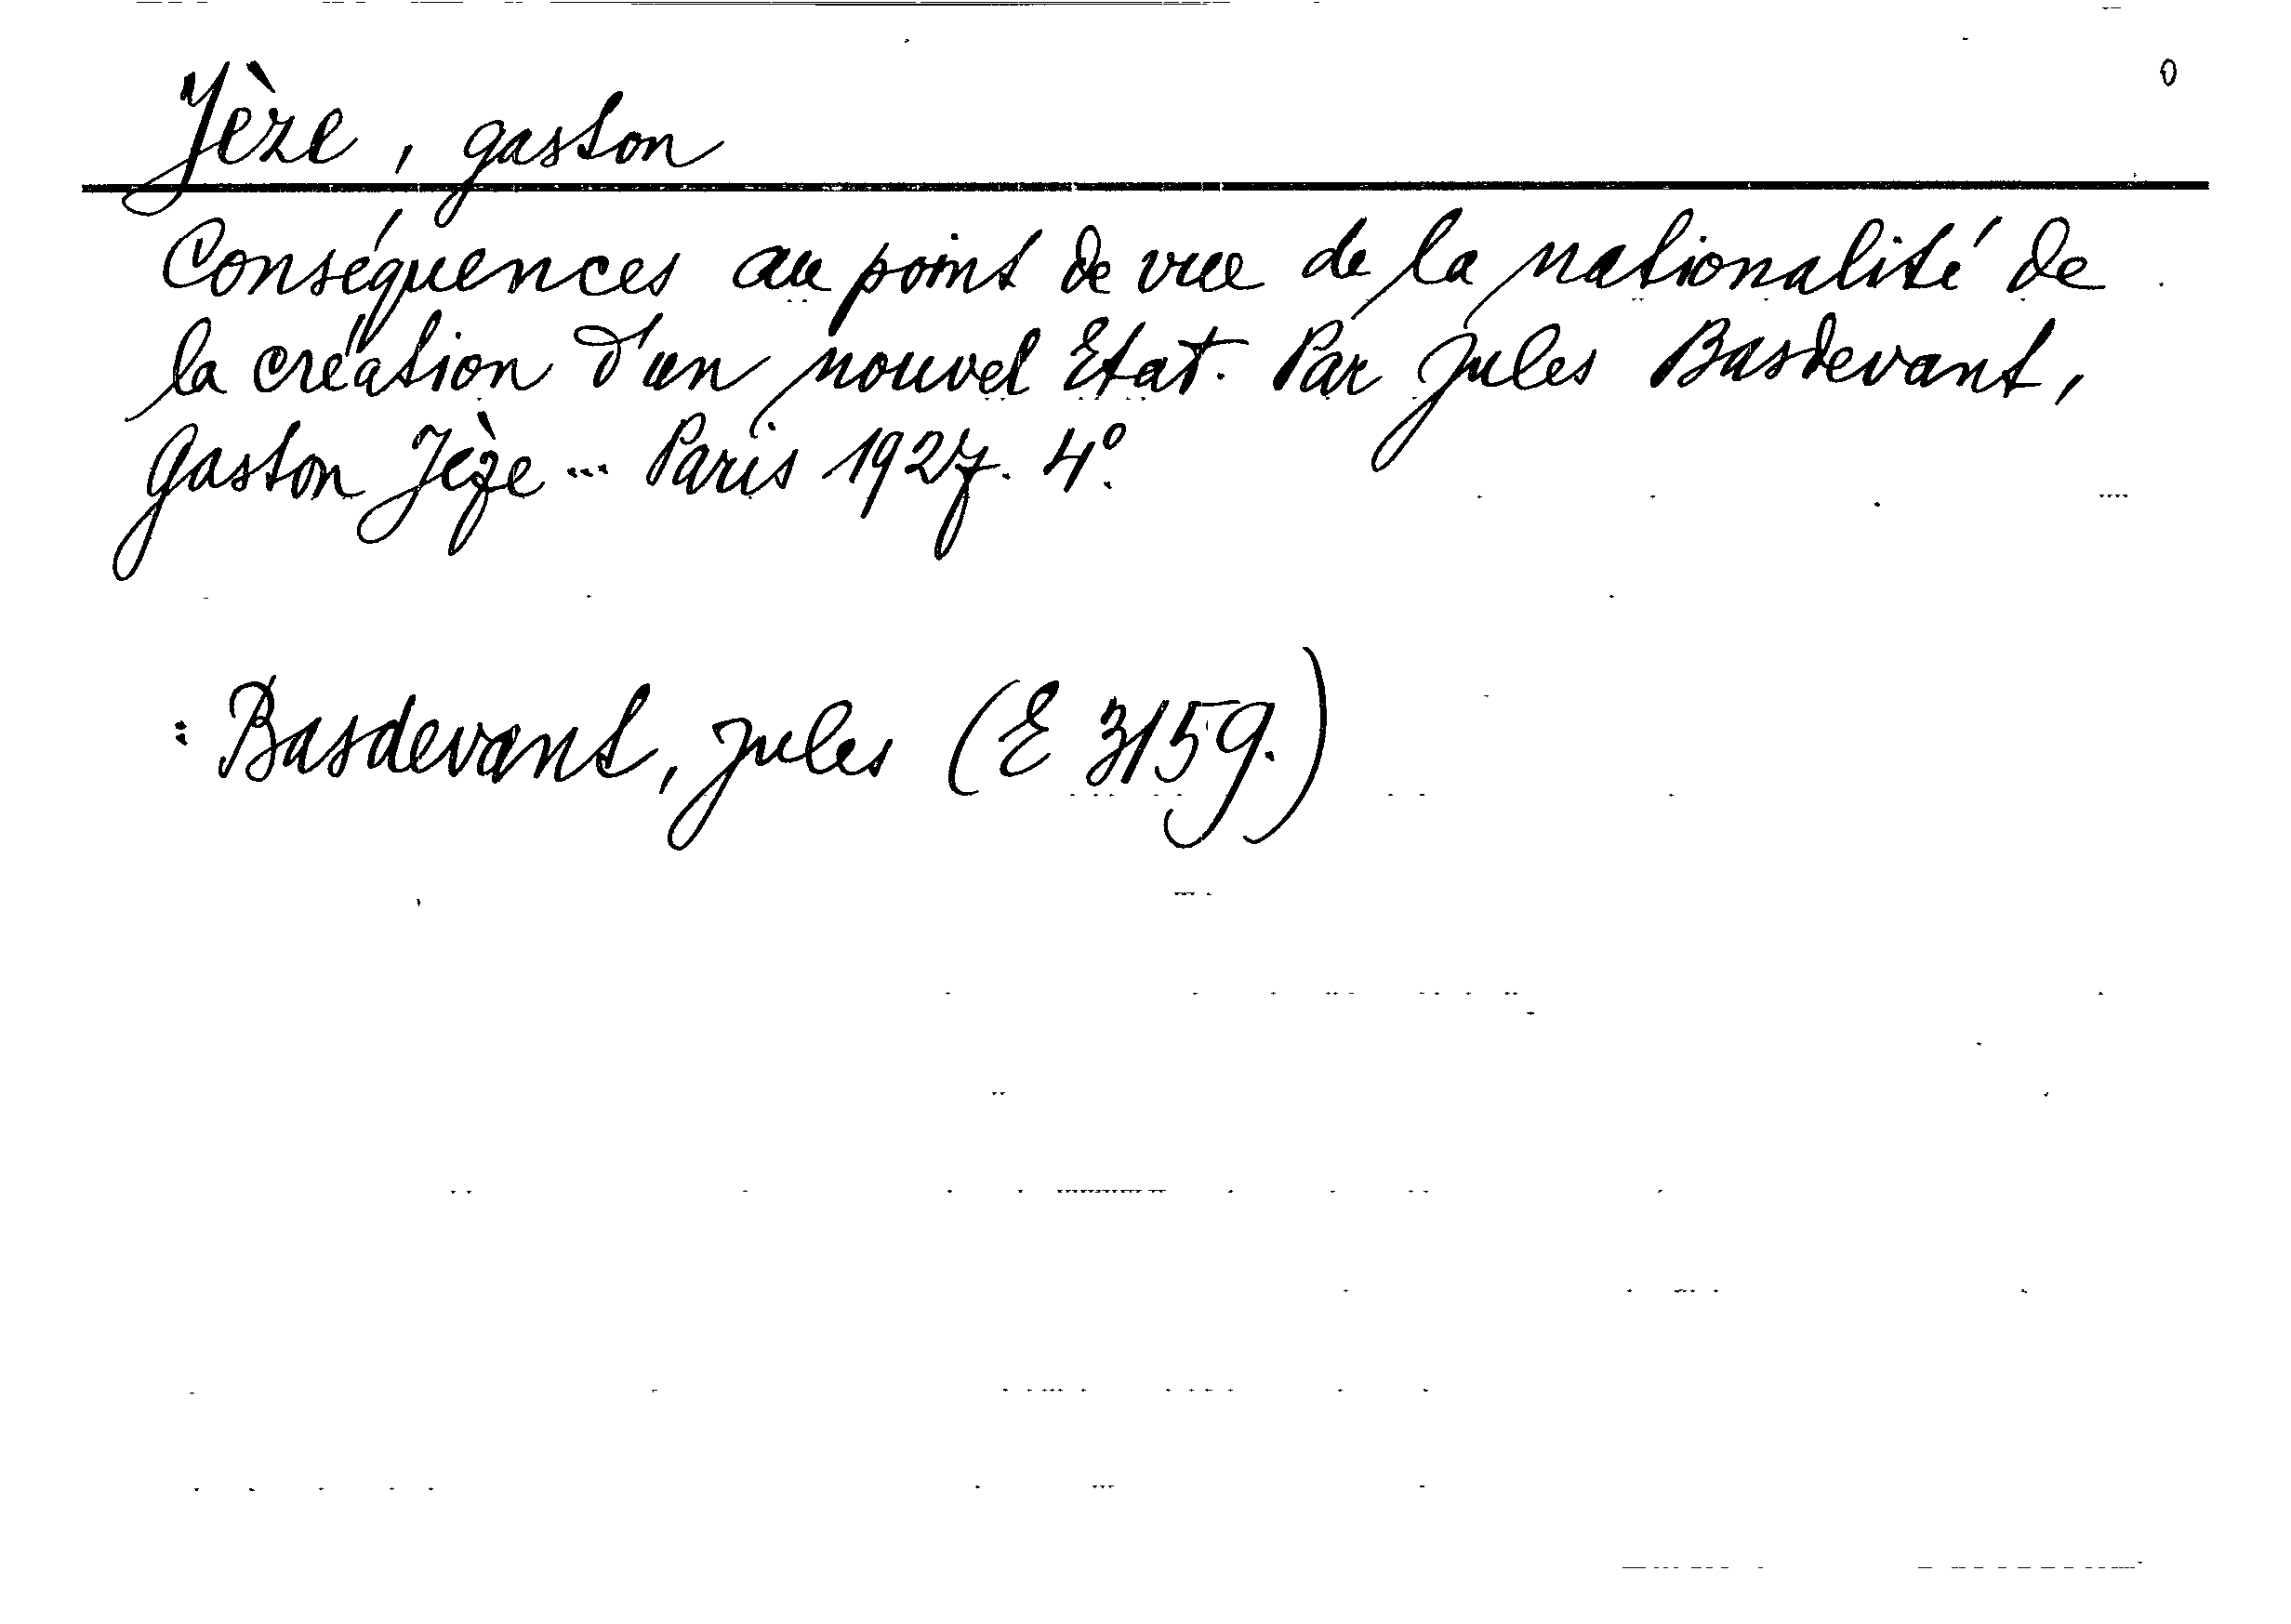 0
Jèze, Gaston
Conséquences au point de vue de la nationalité de
la création d'un nouvel Etat. Par Jules Basdevant,
Gaston Jèze... Paris 1927. 4°.
: Basdevant, Jules (E 3159.)